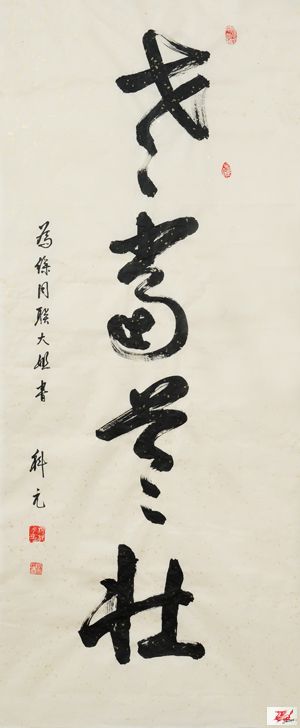 老當益壯
為徐同联大姐書
科元